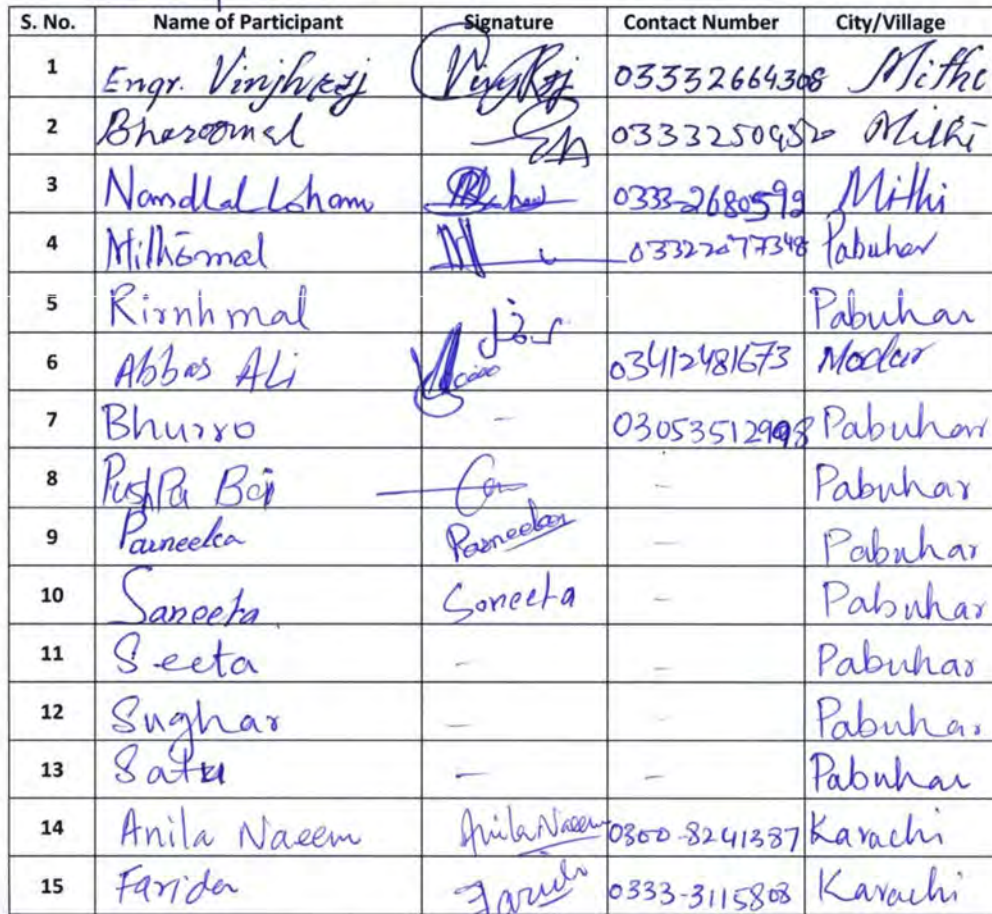 S. No. Name of Participant Signature Contact Number City/Village
1 Engr. Vinjhraj VinjRaj 03332664308 Mithi
2 Bharoomal 03332509520 Mithi
3 Nandlal Loham 0333-2680592 Mithi
4 Mithomal 03322077348 Pabuhar
5 Rirnhmal Pabuhar
6 Abbas Ali 03412481673 Modar
7 Bhurro - 03053512998 Pabuhar
8 PushPa Bai - Pabuhar
9 Parneeka Parneeka - Pabuhar
10 Saneeta Soneeta - Pabuhar
11 Seeta - - Pabuhar
12 Sughar - - Pabuhar
13 Satu - - Pabuhar
14 Anila Naeem Anila Naeem 0300-8241387 Karachi
15 Farida Farida 0333-3115808 Karachi